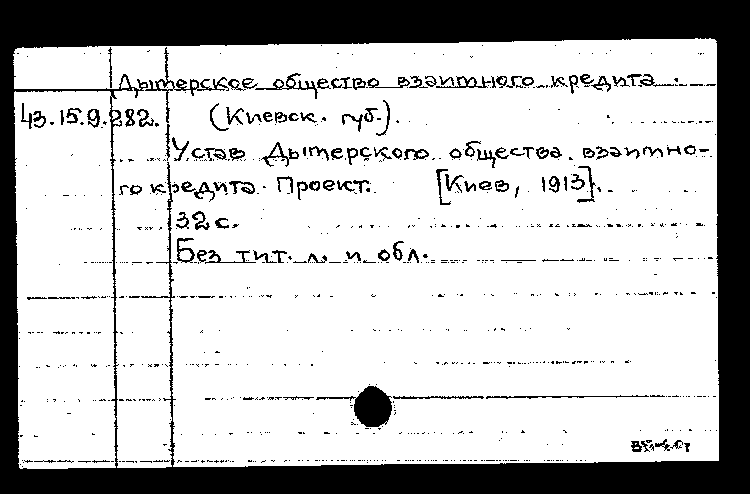 Дымерское общество взаимного кредита.
43.15.9.282. (Киевск. губ.).
Устав Дымерского общества взаимно-
го кредита. Проект. [Киев, 1913].
32 с.
Без тит. л. и обл.